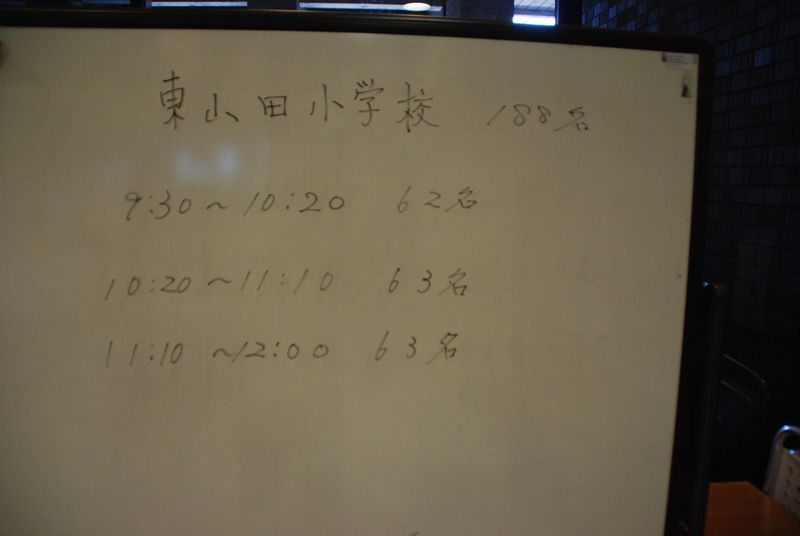 東山田小学校 188名
9:30～10:20 62名
10:20～11:10 63名
11:10～12:00 63名